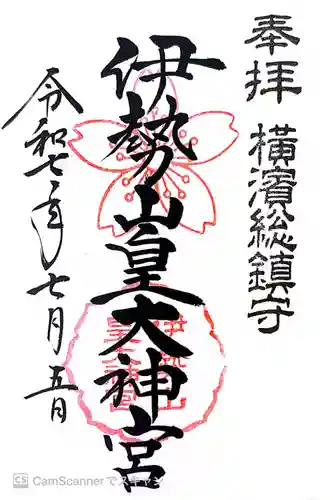 奉拝 横濱総鎮守
伊勢山皇大神宮
令和七年七月五日
伊勢山
皇大神宮
CS CamScannerでスキャン